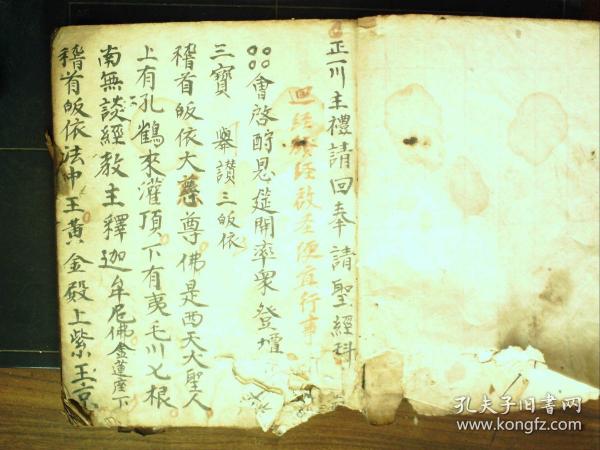 正一川主禮請回奉請聖經科
回經發經啟圣便宜行事
會啓酧恩筵開率衆登壇
三寶 舉讃三皈依
稽首皈依大慈尊佛是西天大聖人
上有孔鶴來灌頂下有夷毛川七根
南無談經教主釋迦牟尼佛金蓮座下
稽首皈依法中王黃金殿上紫玉京
孔夫子旧书网
www.kongfz.com